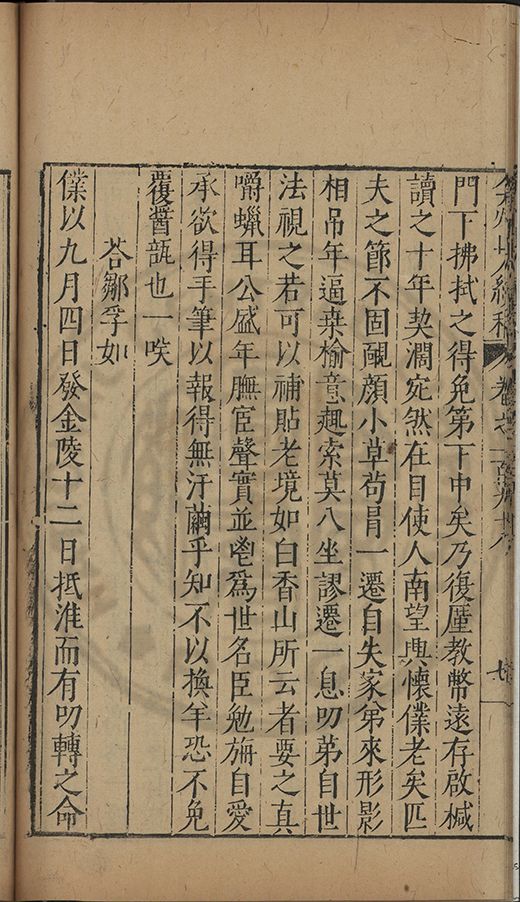 弇州山人續稿 卷之一百九十八 七
門下拂拭之得免第下中矣乃復厪教幣遠存啟椷
讀之十年契濶宛然在目使人南望興懷僕老矣匹
夫之節不固覥顔小草苟冒一遷自失家弟來形影
相吊年逼桑榆意趣索莫八坐謬遷一息叨苐自世
法視之若可以補貼老境如白香山所云者要之真
嚼蠟耳公盛年膴宦聲實並鬯爲世名臣勉旃自愛
承欲得手筆以報得無汙繭乎知不以換羊恐不免
覆醬瓿也一咲
荅鄒孚如
僕以九月四日發金陵十二日抵淮而有叨轉之命